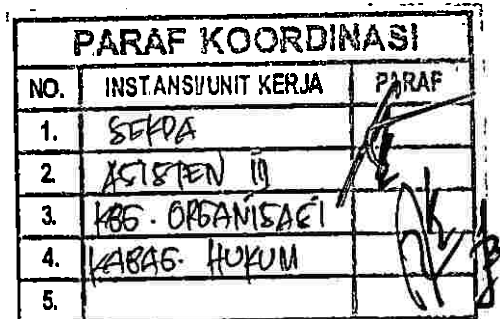 PARAF KOORDINASI
NO. INSTANSI/UNIT KERJA PARAF
1. SEKDA
2. ASISTEN III
3. KBG. ORGANISASI
4. KABAG. HUKUM
5.